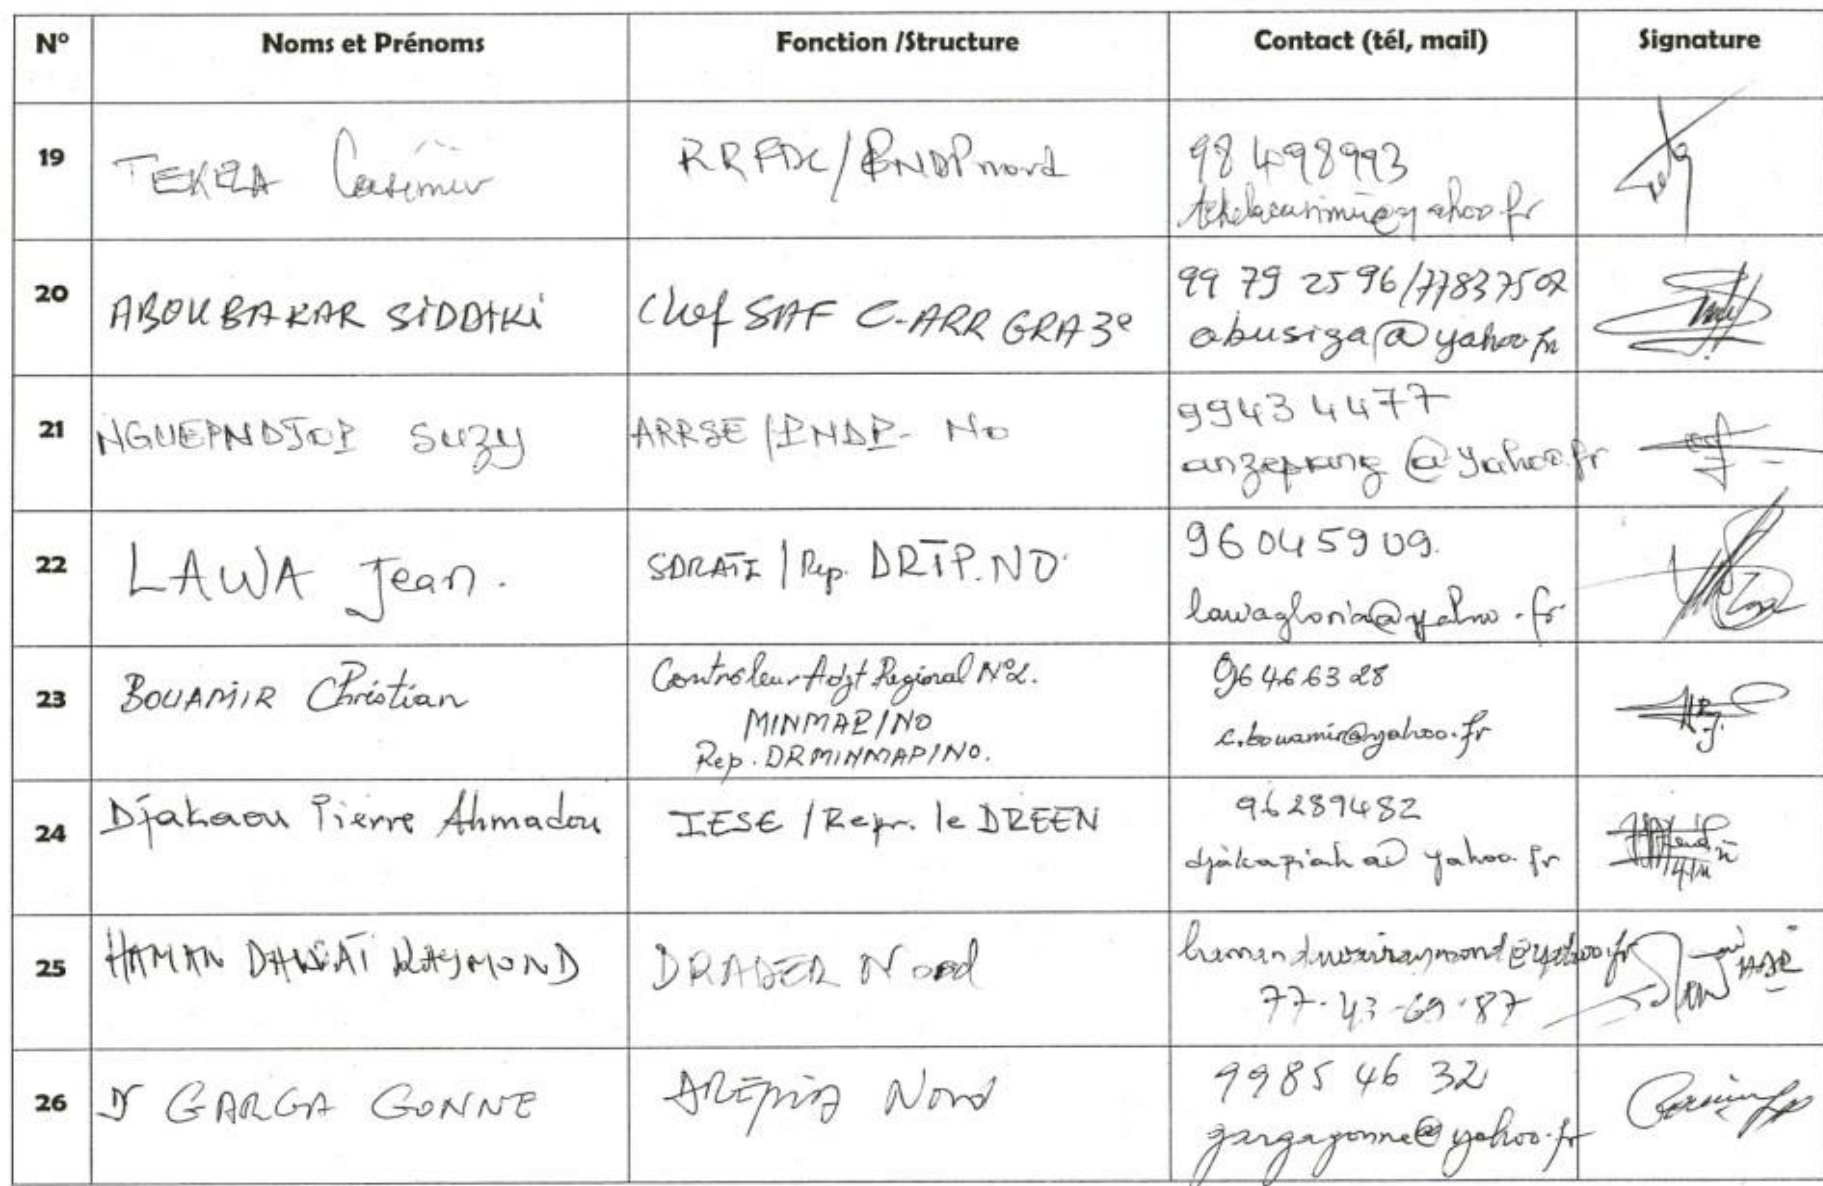 N° Noms et Prénoms Fonction /Structure Contact (tél, mail) Signature
19 TEKELA Casimir RRFDC/PNDP nord 98 498993
yahoo.fr
20 ABOUBAKAR SIDDIKI Chef SAF C-ARR GRA 3e 99 79 25 96/77837502
abusiga@yahoo.fr
21 NGUEPNDJOP Suzy ARRSE/PNDP- No 9943 4477
anzepang@yahoo.fr
22 LAWA Jean. SDRATI / Rep. DRTP.NO 96 04 59 09.
lawagloria@yahoo.fr
23 BOUAMIR Christian Contrôleur Adjt Regional N°2. 96466328
MINMAP/NO c.bouamir@yahoo.fr
Rep. DRMINMAP/NO.
24 Djakaou Pierre Ahmadou IESE / Repr. le DREEN 96289482
djakapiah@yahoo.fr
25 HAMAN DAWAÏ RAYMOND DRADER Nord hamandawairaymond@yahoo.fr
77-43-69-87
26 Dr GARGA GONNE DREPIA Nord 9985 46 32
gargagonne@yahoo.fr